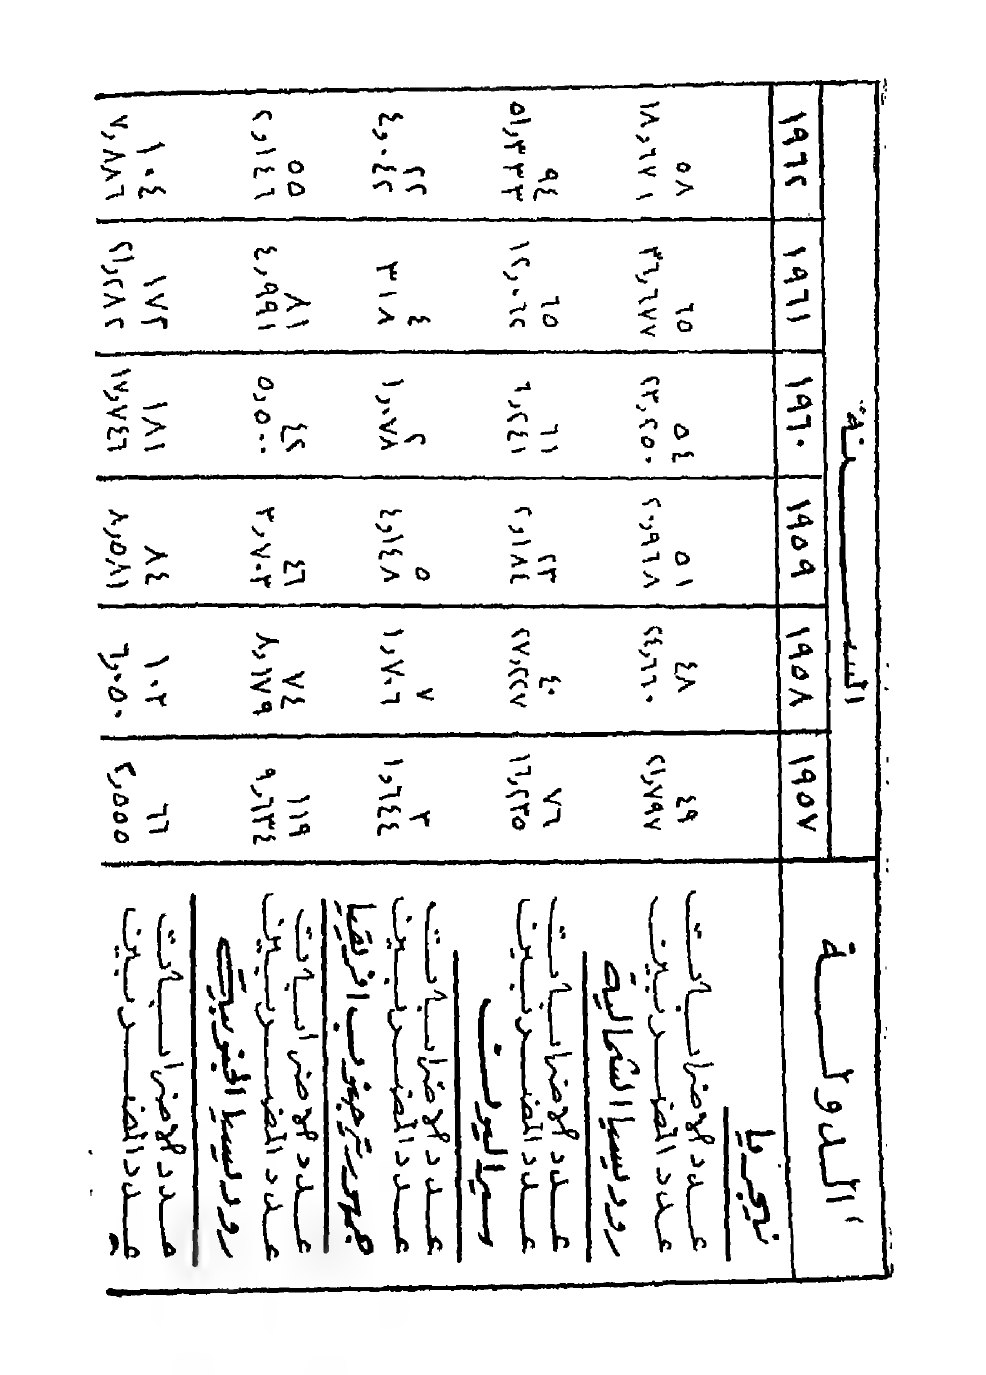 الدولة السنة
١٩٥٧ ١٩٥٨ ١٩٥٩ ١٩٦٠ ١٩٦١ ١٩٦٢
نيجريا
عدد الاضرابات ٤٩ ٤٨ ٥١ ٥٤ ٦٥ ٥٨
عدد المضربين ٢١,٧٩٧ ٢٤,٦٦٠ ٢٠,٩٦٨ ٢٣,٢٥٠ ٣٦,٦٧٧ ١٨,٦٧١
روديسيا الشمالية
عدد الاضرابات ٧٦ ٤٠ ٢٣ ٦١ ٦٥ ٩٤
عدد المضربين ١٦,٢٣٥ ٢٧,٢٢٧ ٢,١٨٤ ٦,٢٤١ ٥١,٣٣٣
سيراليون
عدد الاضرابات ٣ ٧ ٥ ٢ ٤ ٢٢
عدد المضربين ١,٦٤٤ ١,٧٠٦ ٤,١٤٨ ١,٠٧٨ ٣١٨ ٤,٠٤٢
جمهورية جنوب افريقيا
عدد الاضرابات ١١٩ ٧٤ ٤٦ ٤٢ ٨١ ٥٥
عدد المضربين ٩,٦٣٤ ٨,١٧٩ ٣,٧٠٣ ٥,٥٠٠ ٤,٩٩١ ٢,١٤٦
روديسيا الجنوبية
عدد الاضرابات ٦٦ ١٠٣ ٨٤ ١٨١ ١٧٢ ١٠٤
عدد المضربين ٢,٥٥٥ ٦,٠٥٠ ٨,٥٨١ ١٧,٧٤٦ ٢١,٢٨٢ ٧,٨٨٦